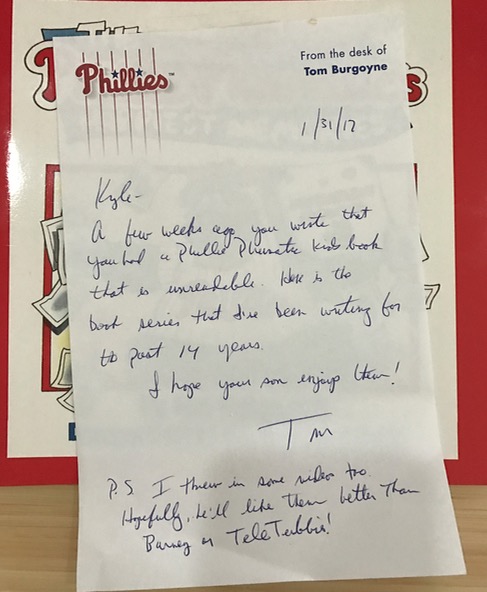 THE
Phillies™
From the desk of
Tom Burgoyne
1/31/17
Kyle-
A few weeks ago you wrote that
you had a Phillie Phanatic kids book
that is unreadable. Here is the
book series that I've been writing for
the past 14 years.
I hope your son enjoys them!
Tom
P.S I threw in some video too.
Hopefully, he'll like them better than
Barney or TeleTubbies!